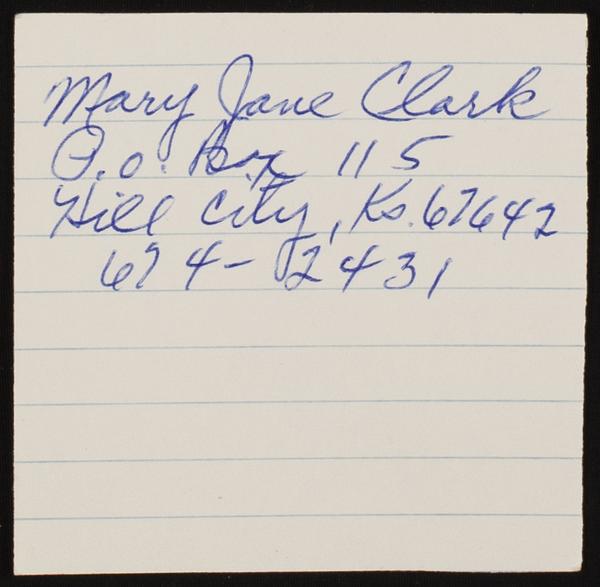 Mary Jane Clark
P.O. Box 115
Hill City, Ks. 67642
674-2431